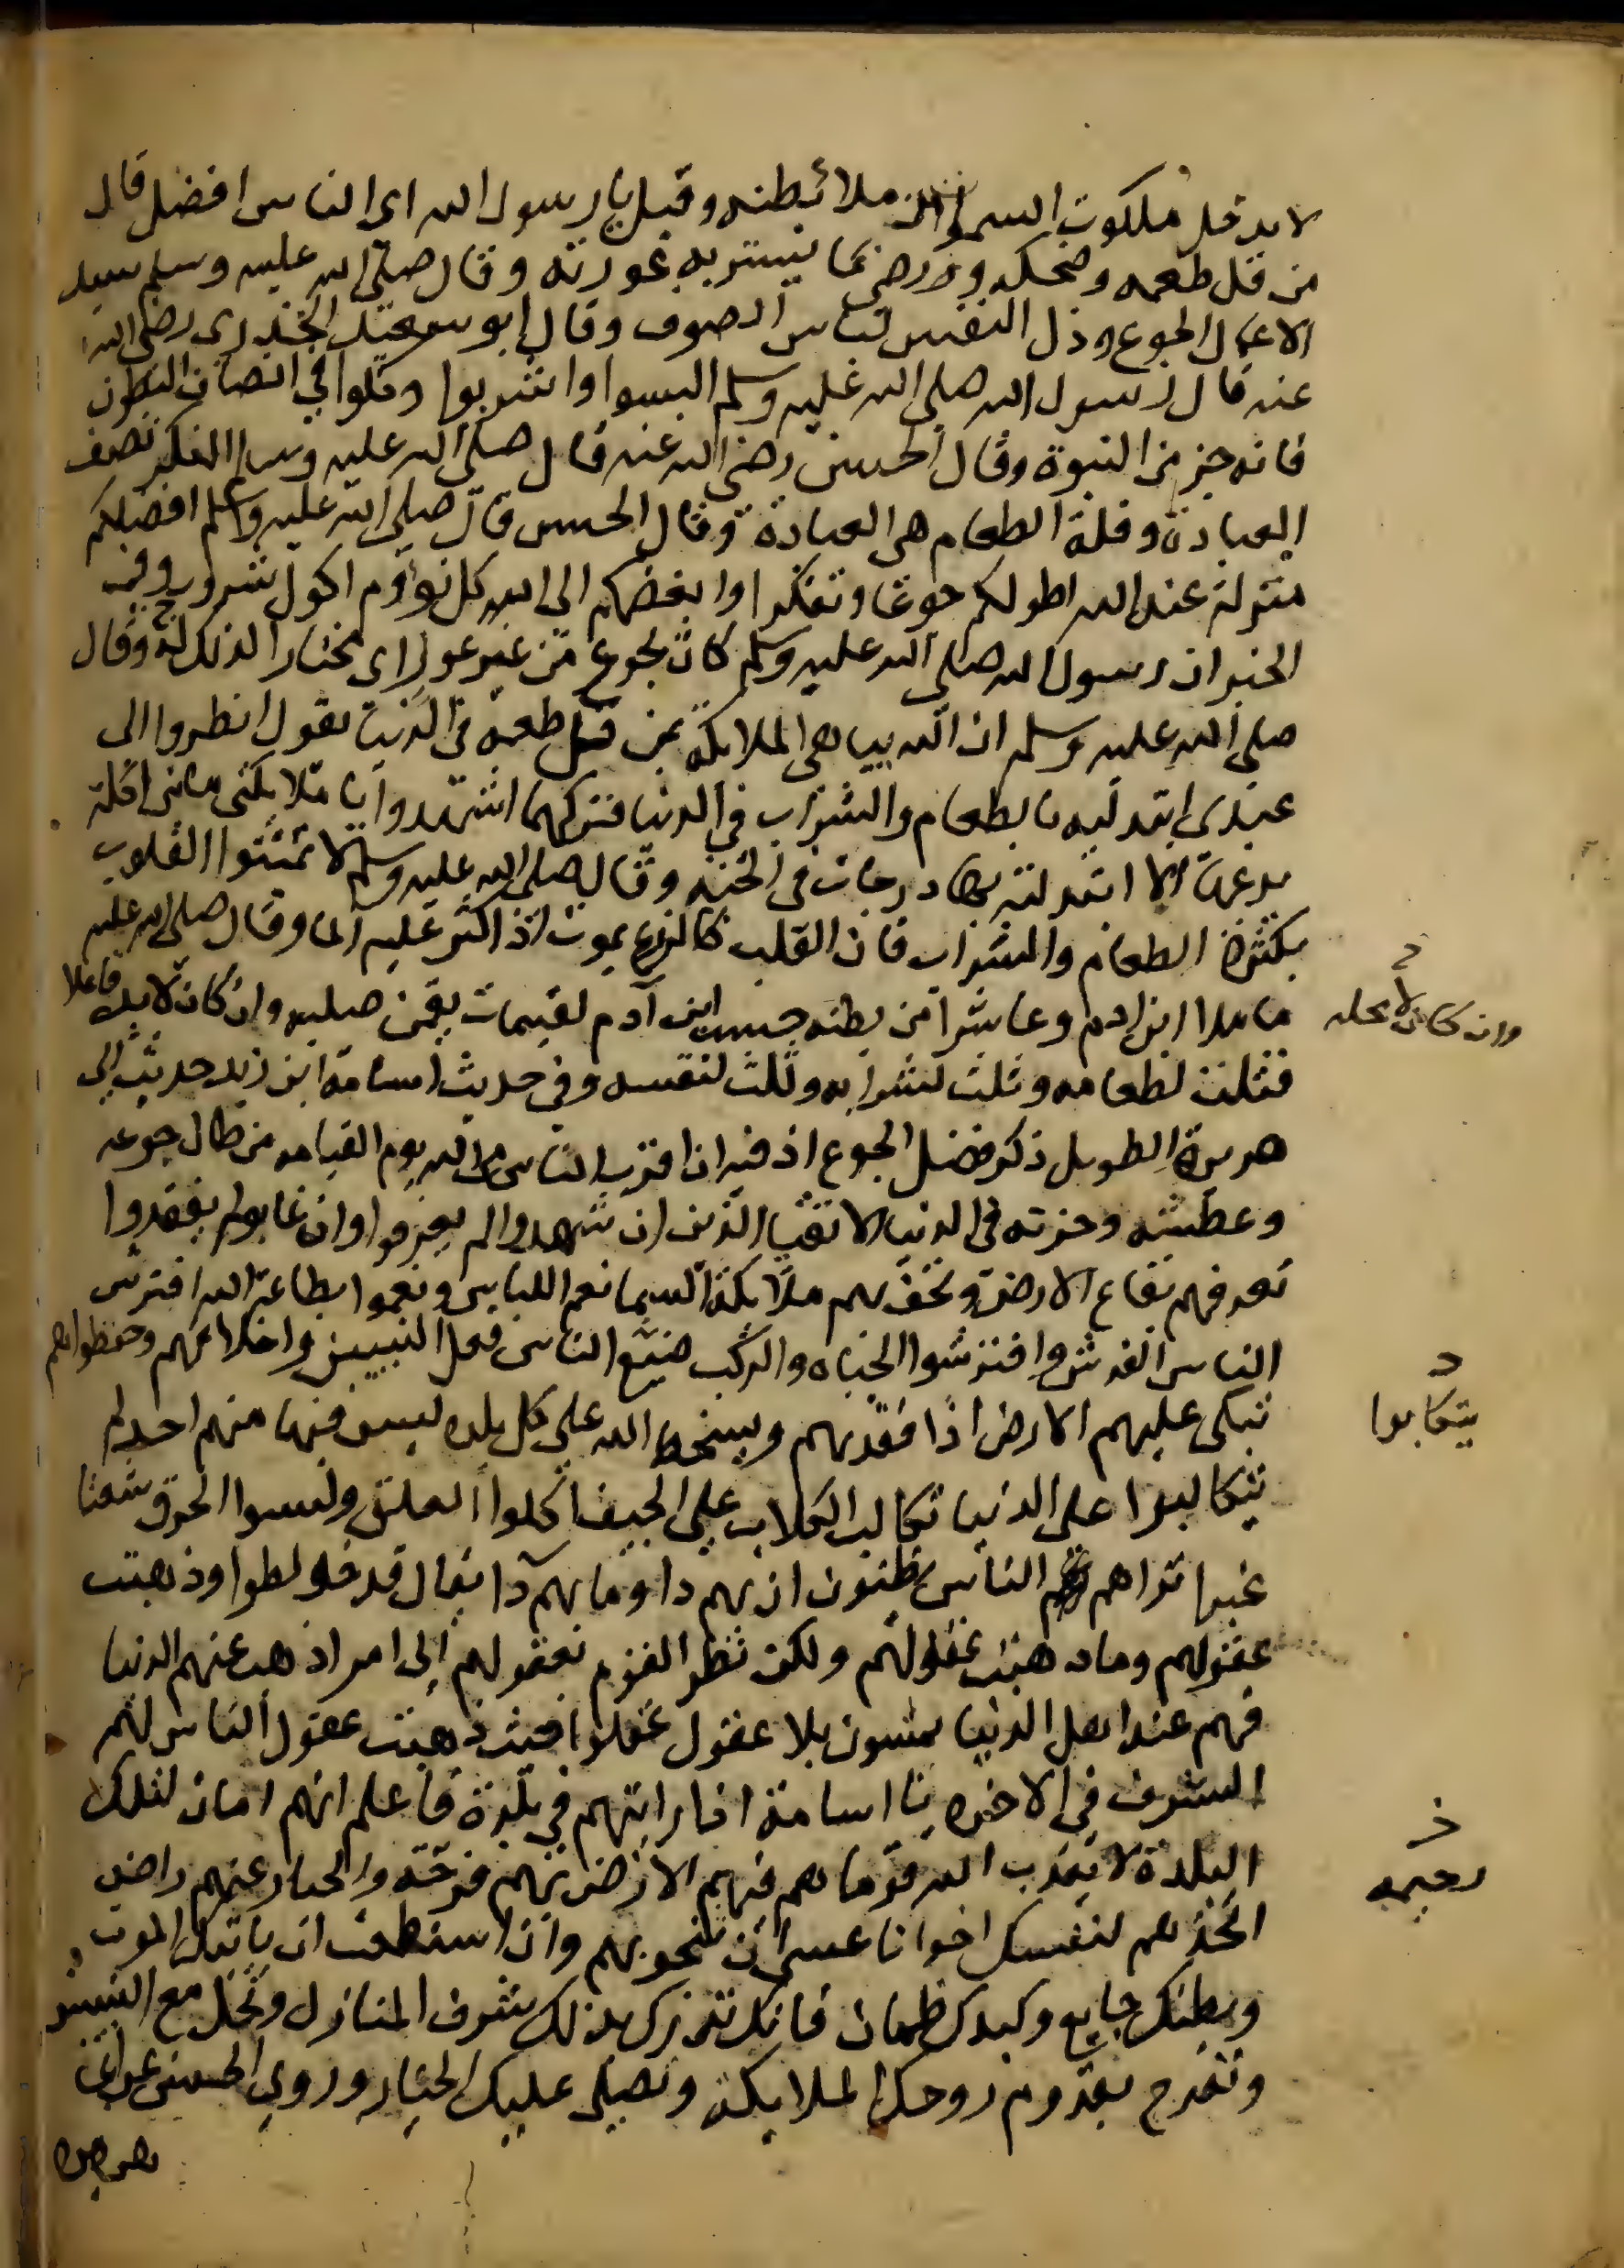 لا يدخل ملكوت السموات من ملا بطنه وقيل يا رسول الله اى الناس افضل قال
من قل طعمه وضحكه ورضى بما يستر به عورته وقال صلى الله عليه وسلم سيد
الاعمال الجوع وذل النفس لباس الصوف وقال ابو سعيد الخدرى رضى الله
عنه قال رسول الله صلى الله عليه وسلم البسوا واشربوا وكلوا في انصاف البطون
فانه جز من النبوة وقال الحسن رضى الله عنه قال صلى الله عليه وسلم الفكر نصف
العبادة وقلة الطعام هى العبادة وقال الحسن قال صلى الله عليه وسلم افضلكم
منزلة عند الله اطولكم جوعا وتفكرا وابغضكم الى الله كل نوم اكول شروب وفى
الخبر ان رسول الله صلى الله عليه وسلم كان يجوع من غير عوز اى مختارا لذلك وقال
صلى الله عليه وسلم ان الله يباهى الملايكة بمن قل طعمه في الدنيا يقول انظروا الى
عبدى ابتليه بالطعام والشراب في الدنيا فتركهما اشهدوا يا ملايكتى ما من اكلة
يدعها الا ابدلته بها درجات في الجنة وقال صلى الله عليه وسلم لا تميتوا القلوب
بكثرة الطعام والشراب فان القلب كالزرع يموت اذ اكثر عليه الما وقال صلى الله عليه
ما ملا ابن ادم وعا شرا من بطنه حسب ابن آدم لقيمات يقمن صلبه وان كان لابد فاعلا
وان كان لا محله
فثلث لطعامه وثلث لشرابه وثلث لنفسه وفي حديث اسامة ابن زيد حديث ابى
هريرة الطويل ذكر فضل الجوع اذ فيه ان اقرب الناس من الله يوم القيامه من طال جوعه
وعطشه وحزنه في الدنيا الاتقيا الذين ان شهدوا لم يعرفوا وان غابوا لم يفقدوا
تعرفهم بقاع الارض وتحف بهم ملايكة السما نعم الناس ونعموا بطاعة الله افترش
الناس الفرش وافترشوا الجباه والركب ضيع الناس فعل النبيين واخلاقهم وحفظوا هم
تبكى عليهم الارض اذا فقدتهم ويسخط الله على كل بلده ليس فيها منهم احد لم
يتكابوا
يتكالبوا على الدنيا تكالب الكلاب على الجيف اكلوا العلق ولبسوا الخرق شعثا
غبرا تراهم الناس يظنون ان بهم دا وما بهم دا يقال قد خولطوا وذهبت
عقولهم وما ذهبت عقولهم ولكن نظر القوم بعقولهم الى امر اذهب عنهم الدنيا
فهم عند اهل الدنيا يمشون بلا عقول عقلوا حيث ذهبت عقول الناس لهم
الشرف في الاخره يا اسامة اذا رايتهم في بلدة فاعلم انهم امان لتلك
البلدة لا يعذب الله قوما هم فيهم الارض بهم فرحة والجبار عنهم راض
رحيمه
اتخذهم لنفسك اخوانا عسى ان تنجو بهم وان استطعت ان ياتيك الموت
وبطنك جايع وكبدك ظمان فانك تدرك بذلك شرف المنازل وتحل مع النبيين
وتفرح بقدوم روحك الملايكة ويصلى عليك الجبار وروى الحسن عن ابى
هريره